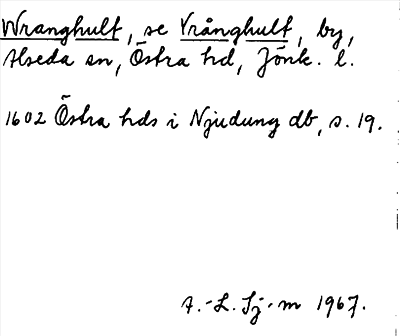 Wranghult, se Vrånghult, by,
Alseda sn, Östra hd, Jönk. l.
1602 Östra hds i Njudung db, s. 19.
A.-L. Sj-m 1967.